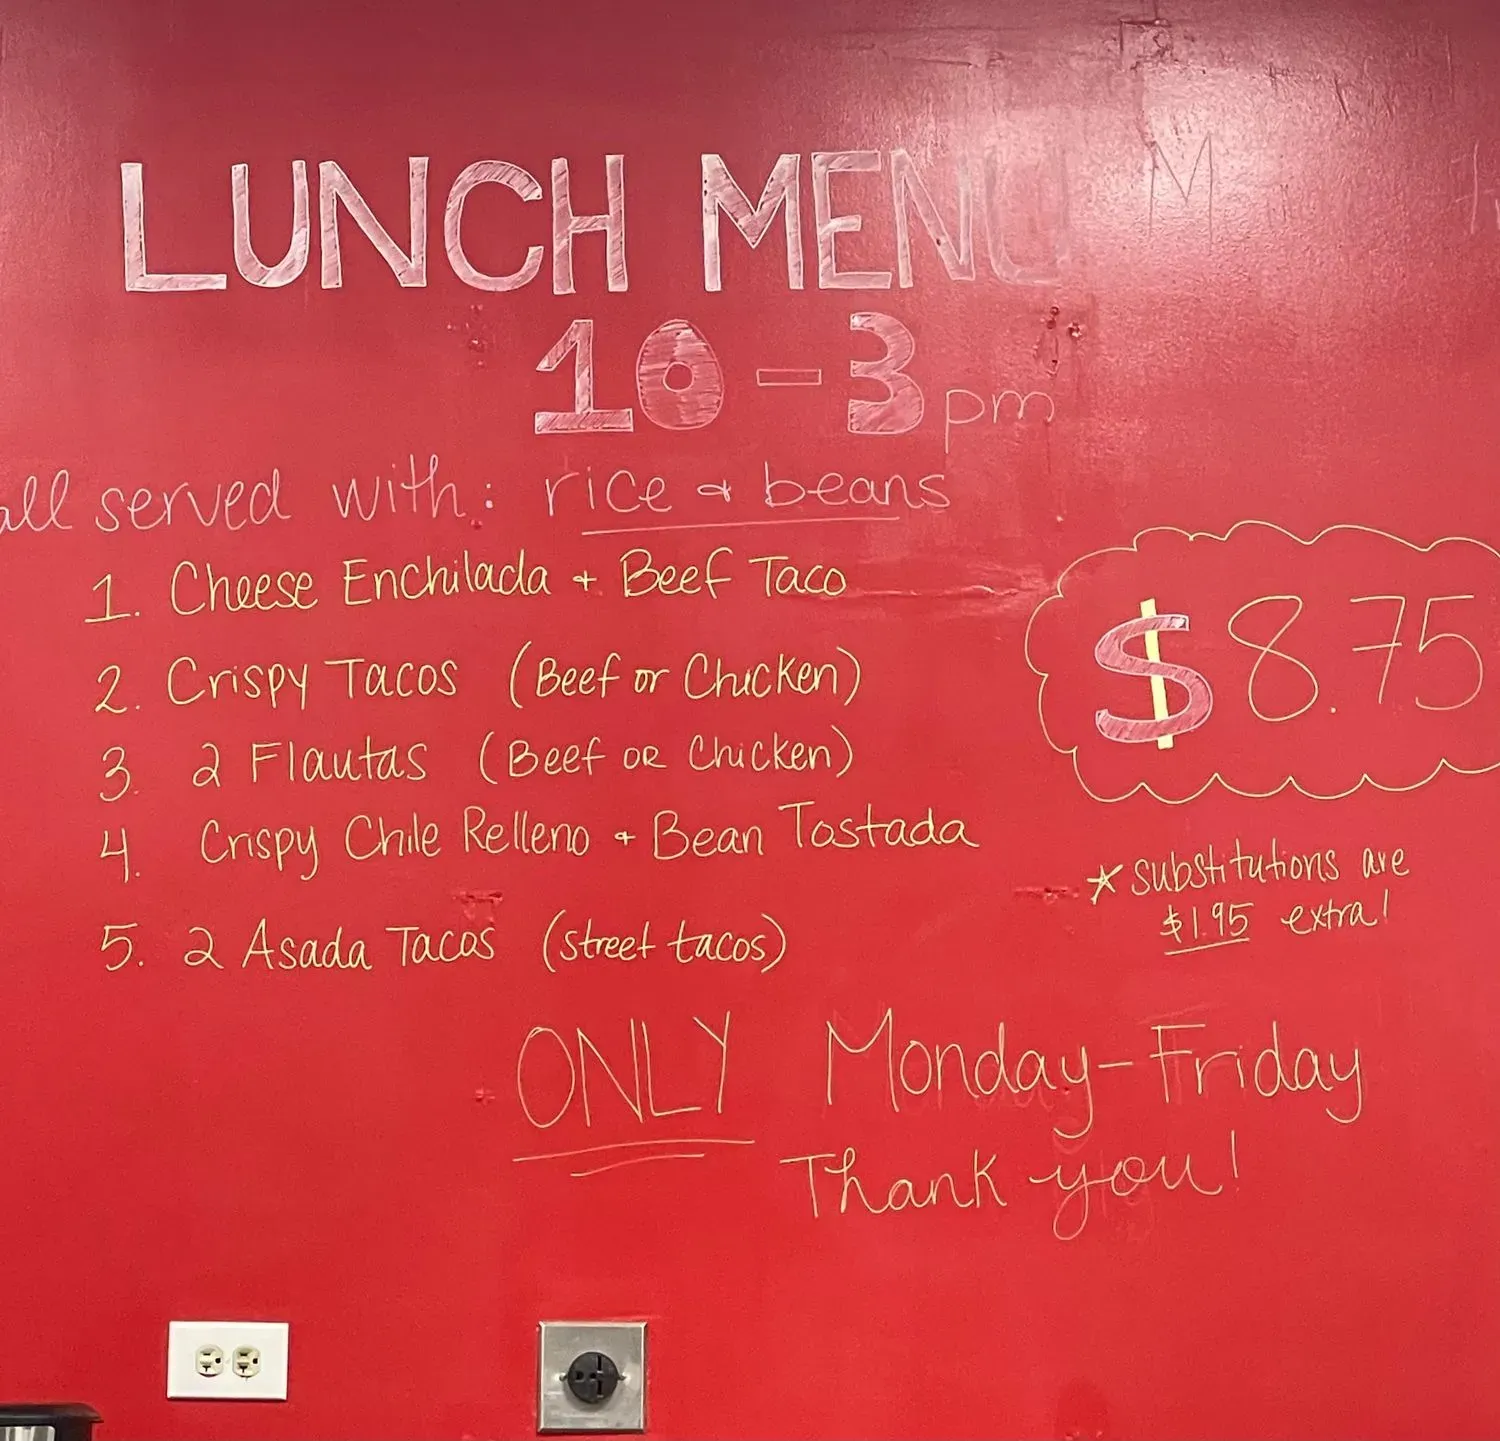 LUNCH MENU
10-3 pm
all served with: rice & beans
1. Cheese Enchilada + Beef Taco
2. Crispy Tacos (Beef or Chicken)
3. 2 Flautas (Beef OR Chicken)
4. Crispy Chile Relleno + Bean Tostada
5. 2 Asada Tacos (street tacos)
$8.75
* substitutions are
$1.95 extra!
ONLY Monday-Friday
Thank you!